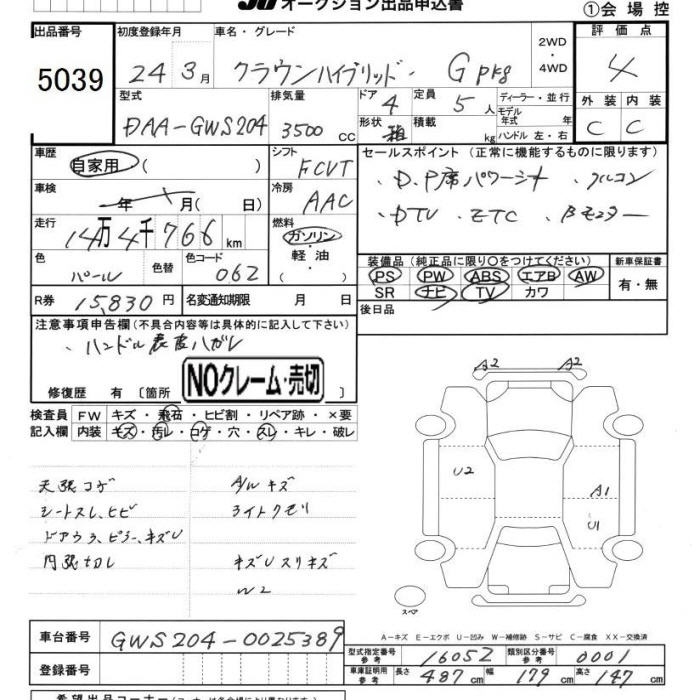 オークション出品申込書
①会場控
出品番号 初度登録年月 車名・グレード 2WD 4WD 評価点
5039 24 3月 クラウンハイブリッド Gpkg 4
型式 排気量 ドア 定員 ディーラー・並行 外装 内装
DAA-GWS204 3500cc 4 5人 モデル年式 年 C C
形状 積載 kg ハンドル 左・右
車歴 自家用 ( ) シフト FCVT
セールスポイント(正常に機能するものに限ります)
・D.P席パワーシート ・クルコン
・DTV ・ETC ・Bモニター
車検 年 月(日) 冷房 AAC
走行 14万4千766km 燃料 ガソリン・軽油・( )
色 パール 色替 色コード 062
装備品(純正品に限り○をつけてください) 新車保証書
PS PW ABS エアB AW 有・無
SR ナビ TV カワ
R券 15,830円 名変通知期限 月 日
後日品
注意事項申告欄(不具合内容等は具体的に記入して下さい)
・ハンドル表皮ハガレ
修復歴 有 〔箇所
NOクレーム・売切
検査員 FW キズ・飛石・ヒビ割・リペア跡・×要
記入欄 内装 キズ・汚レ・コゲ・穴・スレ・キレ・破レ
天張コゲ A/Wキズ
シートスレ、ヒビ ライトクモリ
ドアウラ、ピラー、キズU
内張切レ キズUスリキズ
W2
A2 A2
U2 A1
U1
スペア
A-キズ E-エクボ U-凹み W-補修跡 S-サビ C-腐食 XX-交換済
車台番号 GWS204-0025389
登録番号
型式指定番号 参考 16052 類別区分番号 参考 0001
車庫証明用 参考 長さ 487cm 幅 179cm 高さ 147cm
希望出品コーナー